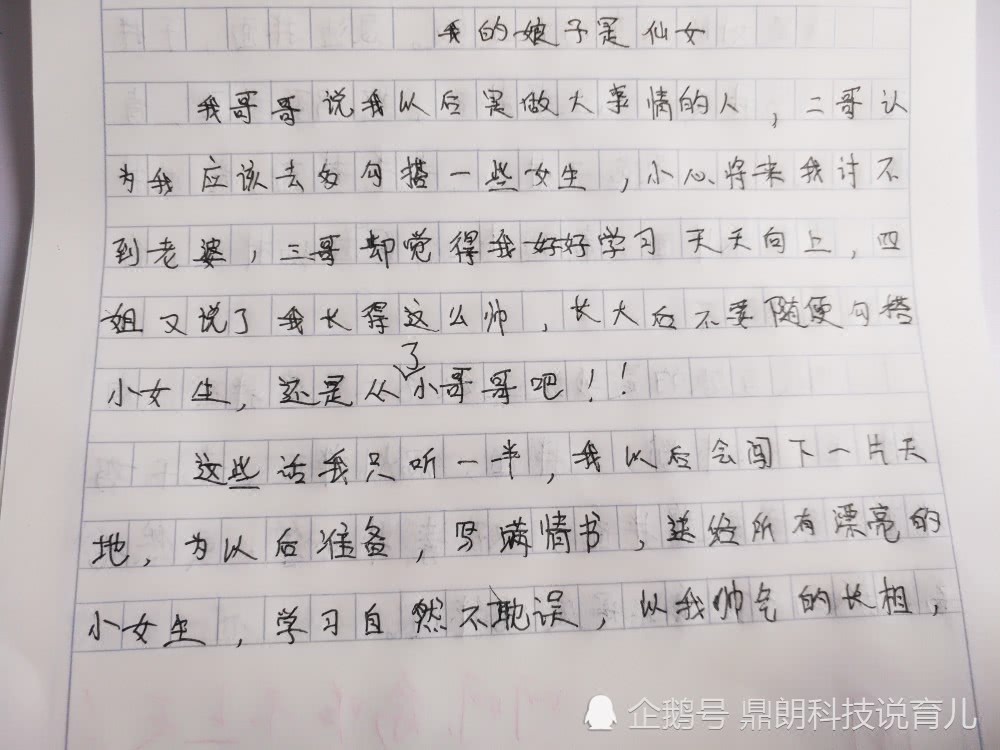 我的娘子是仙女
我哥哥说我以后是做大事情的人，二哥认
为我应该去多勾搭一些女生，小心将来我讨不
到老婆，三哥却觉得我好好学习天天向上，四
姐又说了我长得这么帅，长大后不要随便勾搭
小女生，还是从了小哥哥吧！！
这些话我只听一半，我以后会闯下一片天
地，为以后准备，写满情书，送给所有漂亮的
小女生，学习自然不耽误，以我帅气的长相，
企鹅号 鼎朗科技说育儿